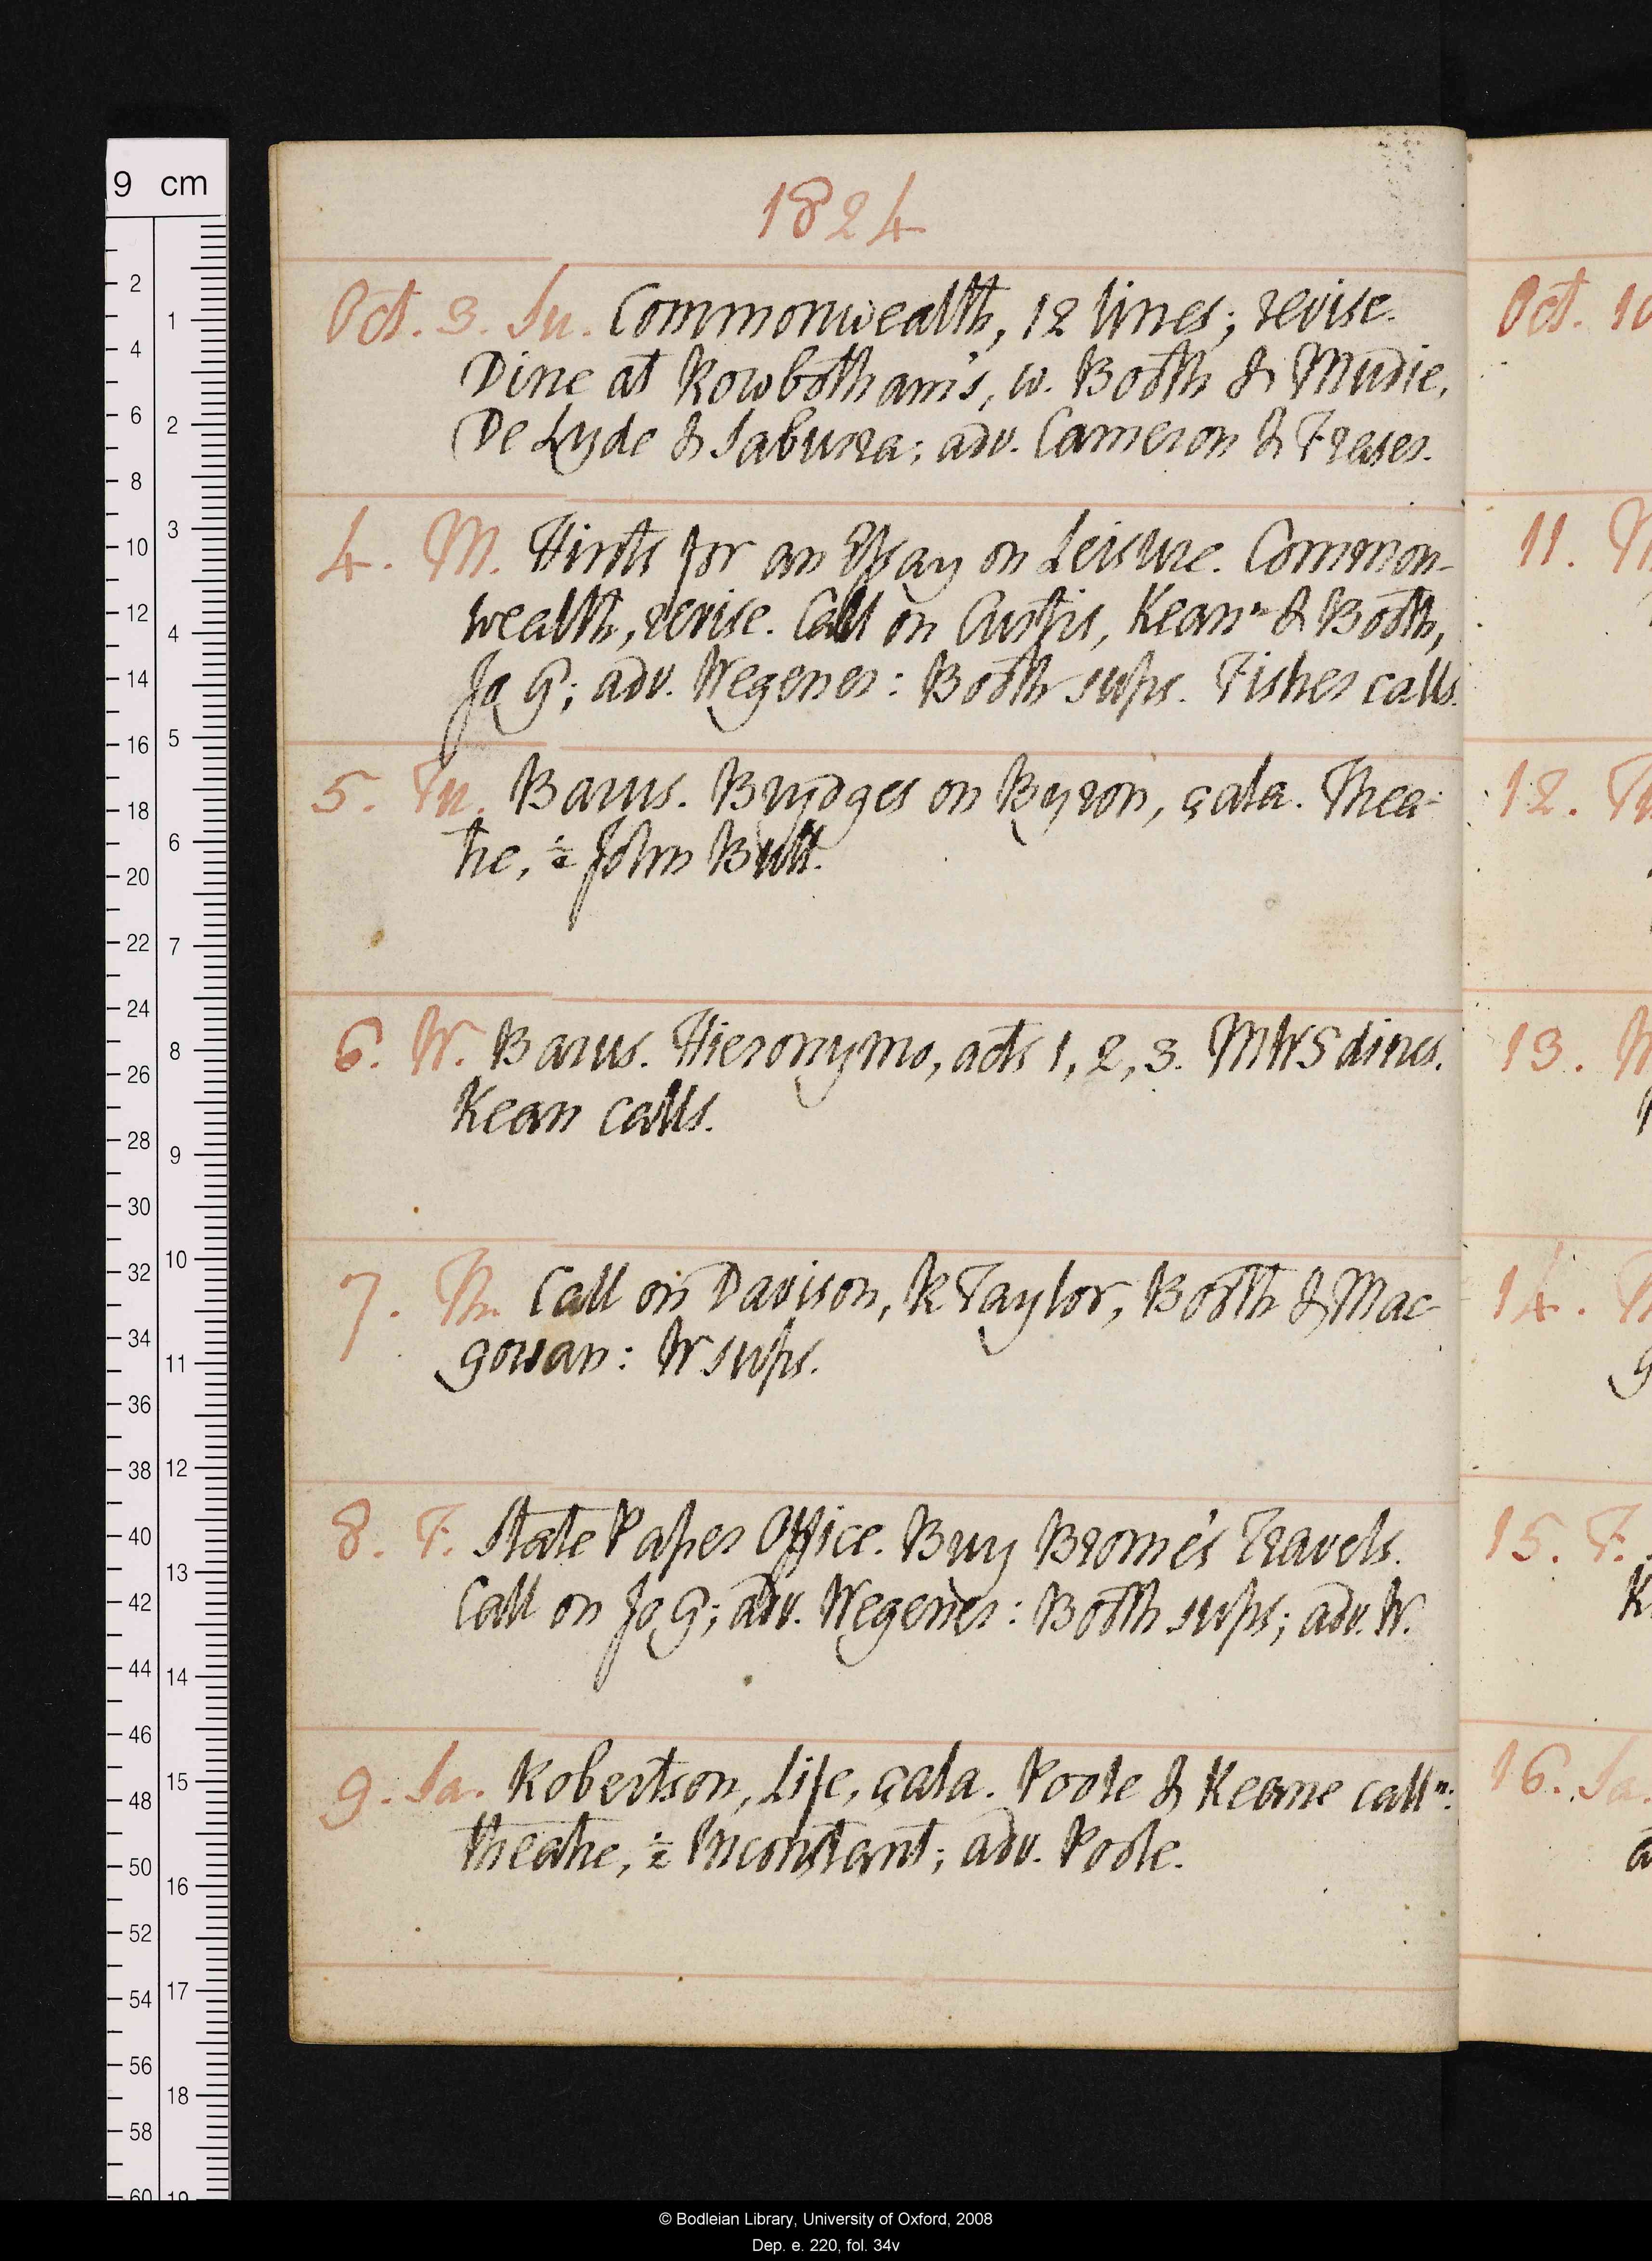 1824
Oct. 3. Su. Commonwealth, 12 lines; revise.
Dine at Rowbotham's, w. Booth & Mudie,
De Lyde & Sabura; adv. Cameron & Fraser.
4. M. Hints for an Essay on Leisure. Common-
wealth, revise. Call on Curtis, Kean n & Booth,
Jo G; adv. Wegener: Booth sups. Fisher calls.
5. Tu. Barus. Brydges on Byron, çala. Thea-
tre, ½ John Bull.
6. W. Barus. Hieronymo, acts 1, 2, 3. MWS dines.
Kean calls.
7. Th. Call on Davison, R Taylor, Booth & Mac-
gowan: W sups.
8. F. State Paper Office. Buy Brome's Travels.
Call on Jo G; adv. Wegener: Booth sups; adv. W.
9. Sa. Robertson, Life, çala. Poole & Keane call n:
theatre, ½ Inconstant; adv. Poole.
Oct. 10
11. M
12. Tu
13. W
14. T
15. F.
16. Sa.
9 cm
2
4
6
8
10
12
14
16
18
20
22
24
26
28
30
32
34
36
38
40
42
44
46
48
50
52
54
56
58
60
1
2
3
4
5
6
7
8
9
10
11
12
13
14
15
16
17
18
19
© Bodleian Library, University of Oxford, 2008
Dep. e. 220, fol. 34v